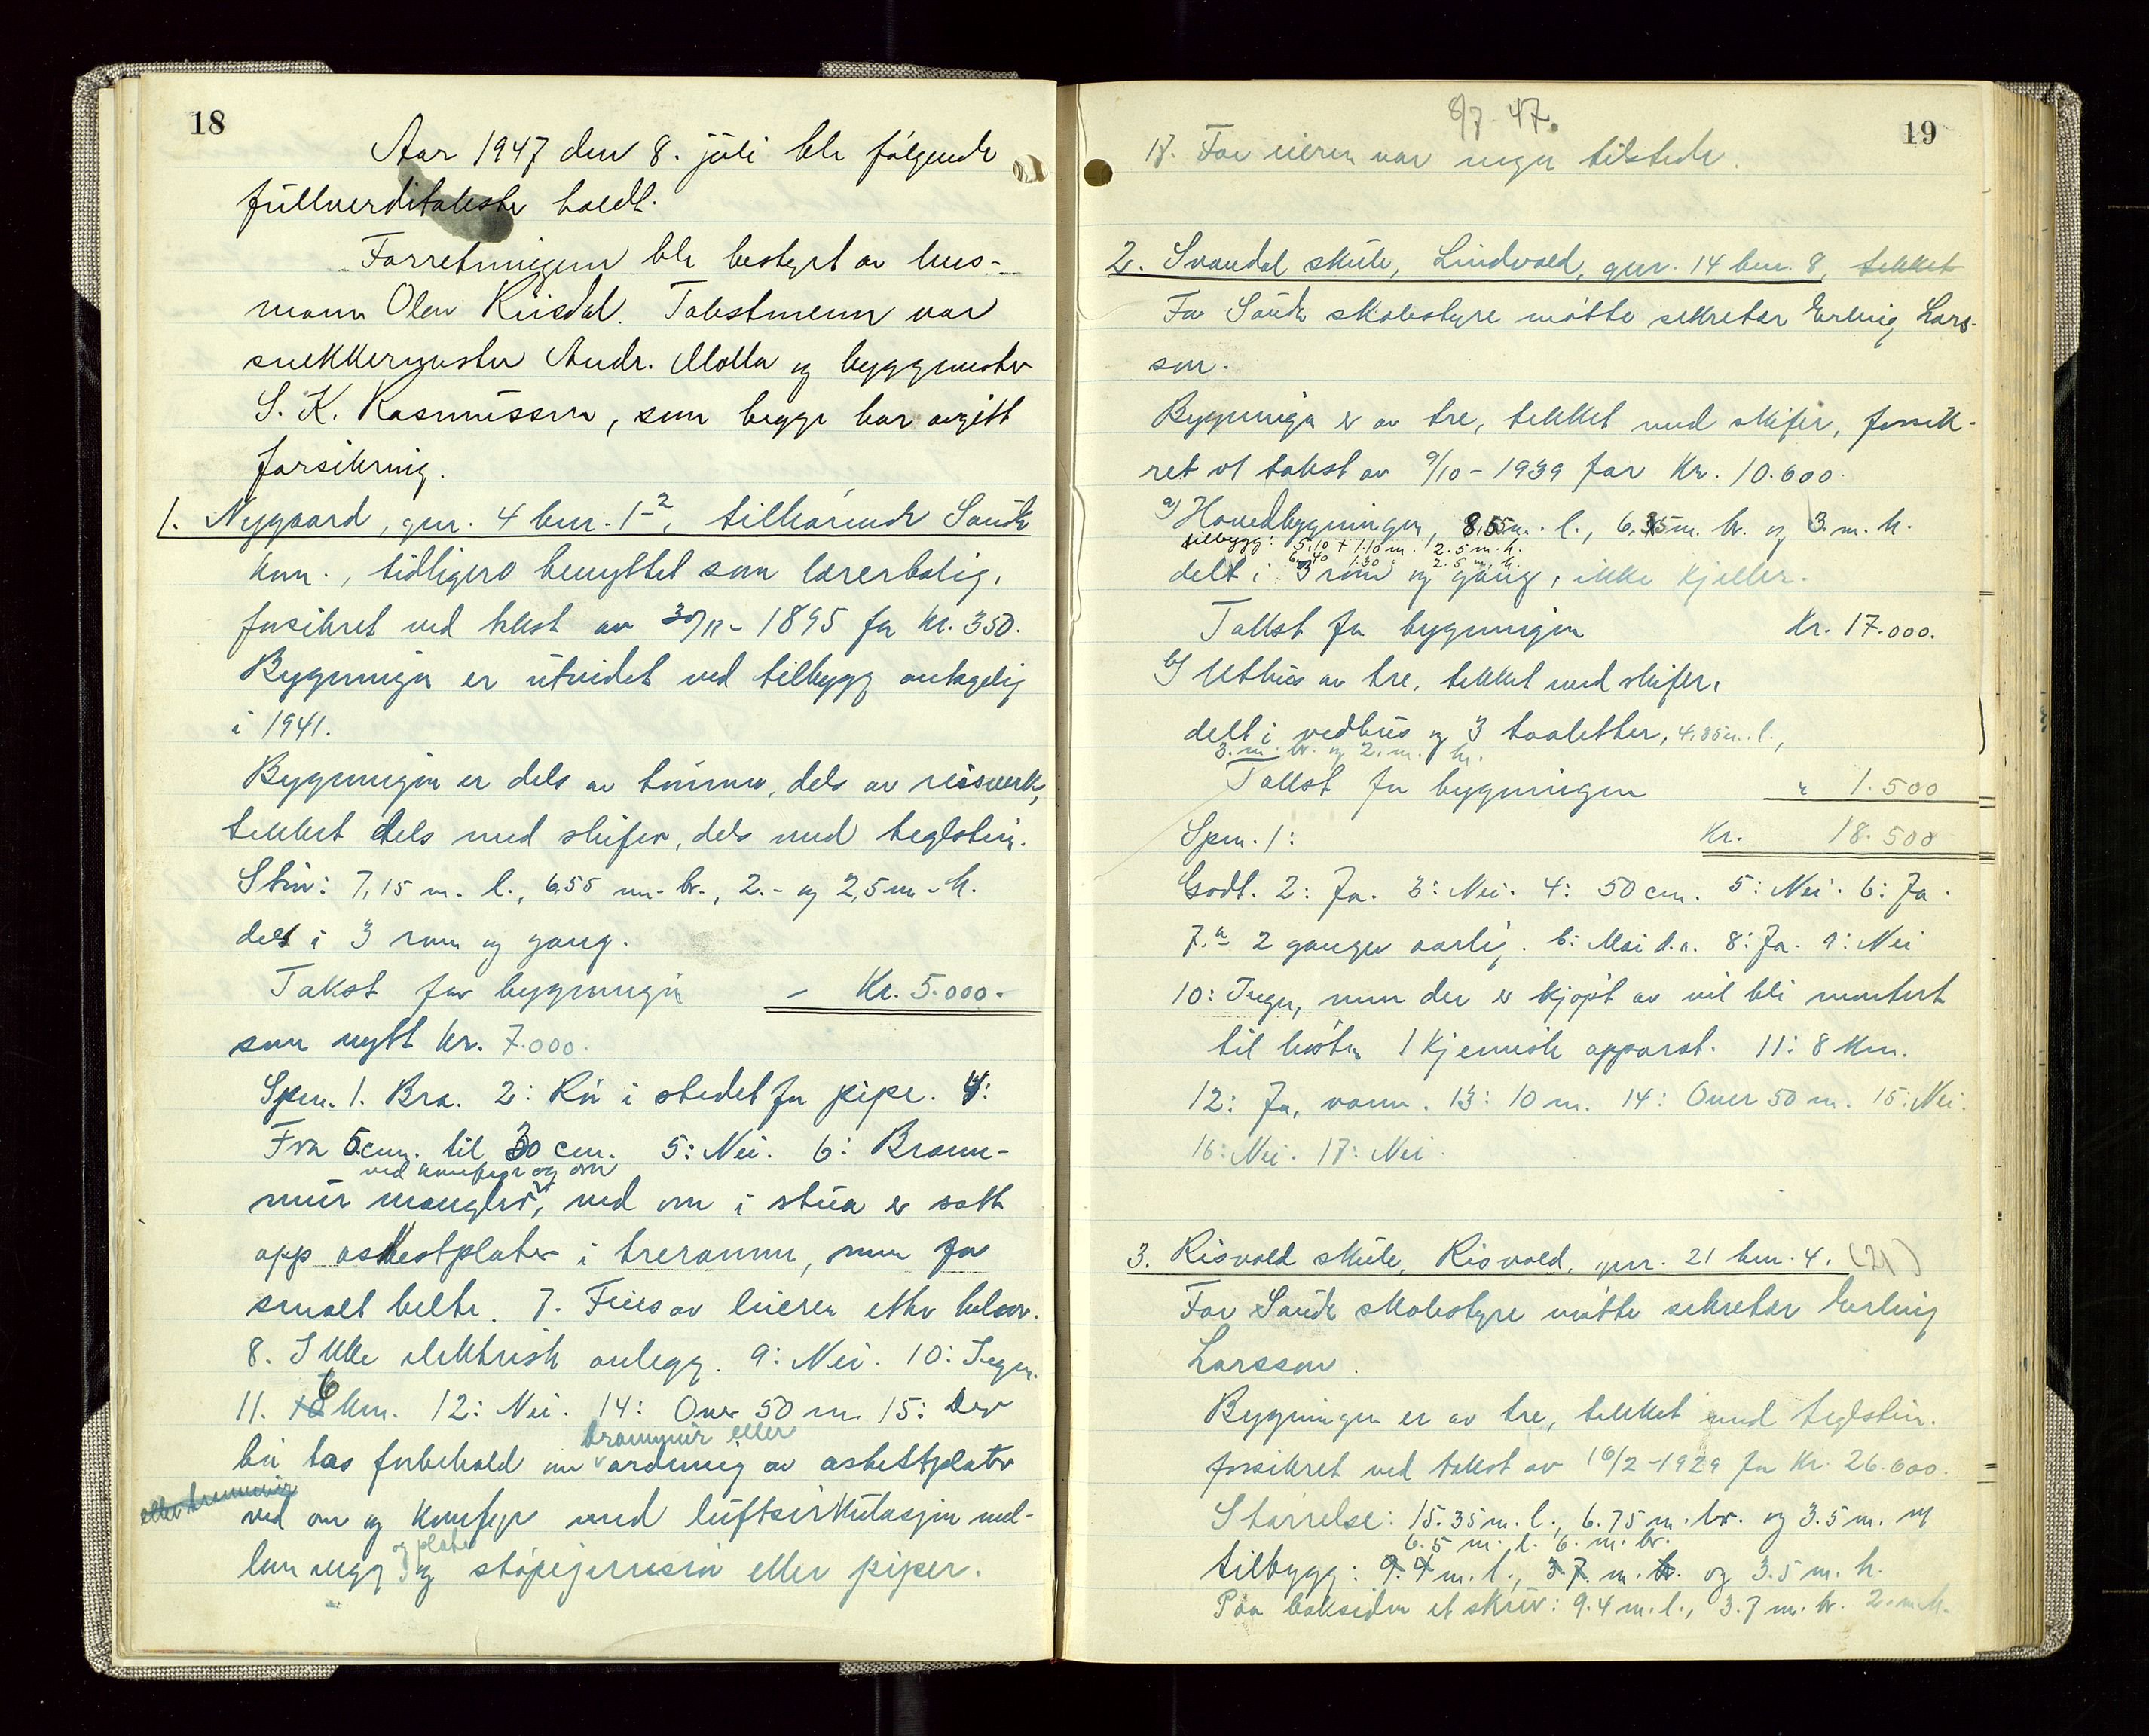 18
Aar 1947 den 8. júli ble følgende
fúllverditakster holdt.
Forretningen ble bestyrt av lens-
mann Olav Riisdal. Takstmenn var
snekkermester Andr. Molla og byggmester
S. K. Rasmússen, som begge har avgitt
forsikring.
1. Nygaard, gnr. 4 bnr. 1-2, tilhørende Saúde
kom., tidligere benyttet som lærerbolig,
forsikret ved takst av 30/11 - 1895 for kr. 350.
Bygningen er útvidet ved tilbygg antagelig
i 1941.
Bygningen er dels av tømmer, dels av reisverk,
tekket dels med skifer, dels med teglstein.
Størr: 7,15 m. l., 6,55 m. br., 2.- og 2,5 m. h.
delt i 3 rom og gang.
Takst for bygningen - Kr. 5.000.-
som nytt kr. 7.000.
Spm. 1. Bra. 2: Rør i stedet for pipe. 4:
Fra 5 cm. til 30 cm. 5: Nei. 6: Brann-
ved komfyr og ovn
múr mangler, ved ovn i stúa er satt
opp asbestplater i treramme, men for
smalt belte. 7. Feies av eieren etter behov.
8. Ikke elektrisk anlegg. 9: Nei. 10: Ingen.
11. 6 km. 12: Nei. 14: Over 50 m. 15: Der
brannmúr eller
bør tas forbehold om ordning av asbestplater
eller brannmúr
ved ovn og komfyr med lúftsirkúlasjon mel-
og plate
lom vegg og støpejernsrør eller piper.
8/7 47.
19
18. For eieren var ingen tilstede.
2. Svandal skúle, Lindvold, gnr. 14 bnr. 8, tekket
For Saúde skolestyre møtte sekretær Erling Lars-
son.
Bygningen er av tre, tekket med skifer, forsik-
ret vd takst av 9/10 - 1939 for Kr. 10.600.
a) Hovedbygningen, 8,55 m. l., 6,35 m. br. og 3. m. h.
tilbygg: 5,10 + 1.10 m. 2.5 m. h.
6.40 1.30 2.5 m. h.
delt i 3 rom og gang, ikke kjeller.
Takst for bygningen Kr. 17.000.
b) Uthús av tre, tekket med skifer,
delt i vedhús og 3 toaletter, 4,85 m. l.,
3. m. br. og 2. m. h.
Takst for bygningen " 1.500
Spm. 1: Kr. 18.500
Godt. 2: Ja. 3: Nei. 4: 50 cm. 5: Nei. 6: Ja.
7. a 2 ganger aarlig. b: Mai d.a. 8: Ja. 9: Nei
10: Ingen, men der er kjøpt av vil bli montert
til høsten 1 kjemisk apparat. 11: 8 km.
12: Ja, vann. 13: 10 m. 14: Over 50 m. 15: Nei.
16: Nei. 17: Nei.
3. Risvold skúle, Risvold, gnr. 21 bnr. 4. (21)
For Saúde skolestyre møtte sekretær Erling
Larsson.
Bygningen er av tre, tekket med teglstein.
forsikret ved takst av 16/2 - 1929 for Kr. 26.600.
Størrelse: 15.35 m. l., 6.75 m. br. og 3.5 m. h
6.5 m. l. 6. m. br.
tilbygg: 9.4 m. l., 3.7 m. br. og 3.5 m. h.
Paa baksiden et skúr: 9.4 m. l., 3.7 m. br. 2. m. h.